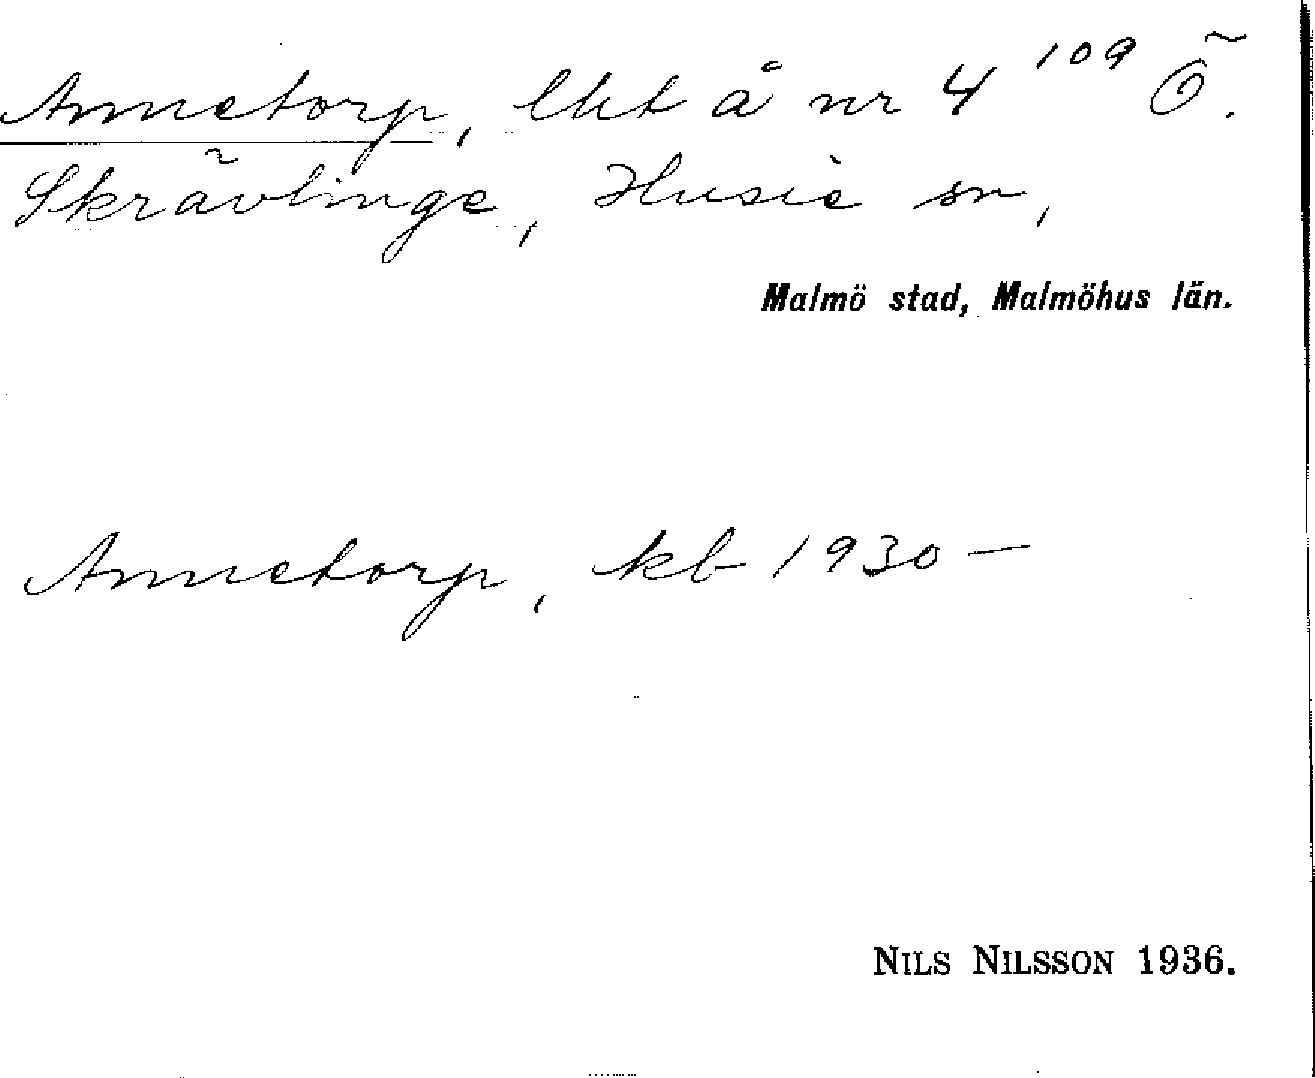 Annetorp, lht å nr 4 109 Ö.
Skrävlinge, Husie sn,
Malmö stad, Malmöhus län.
Annetorp, kb 1930 —
NILS NILSSON 1936.